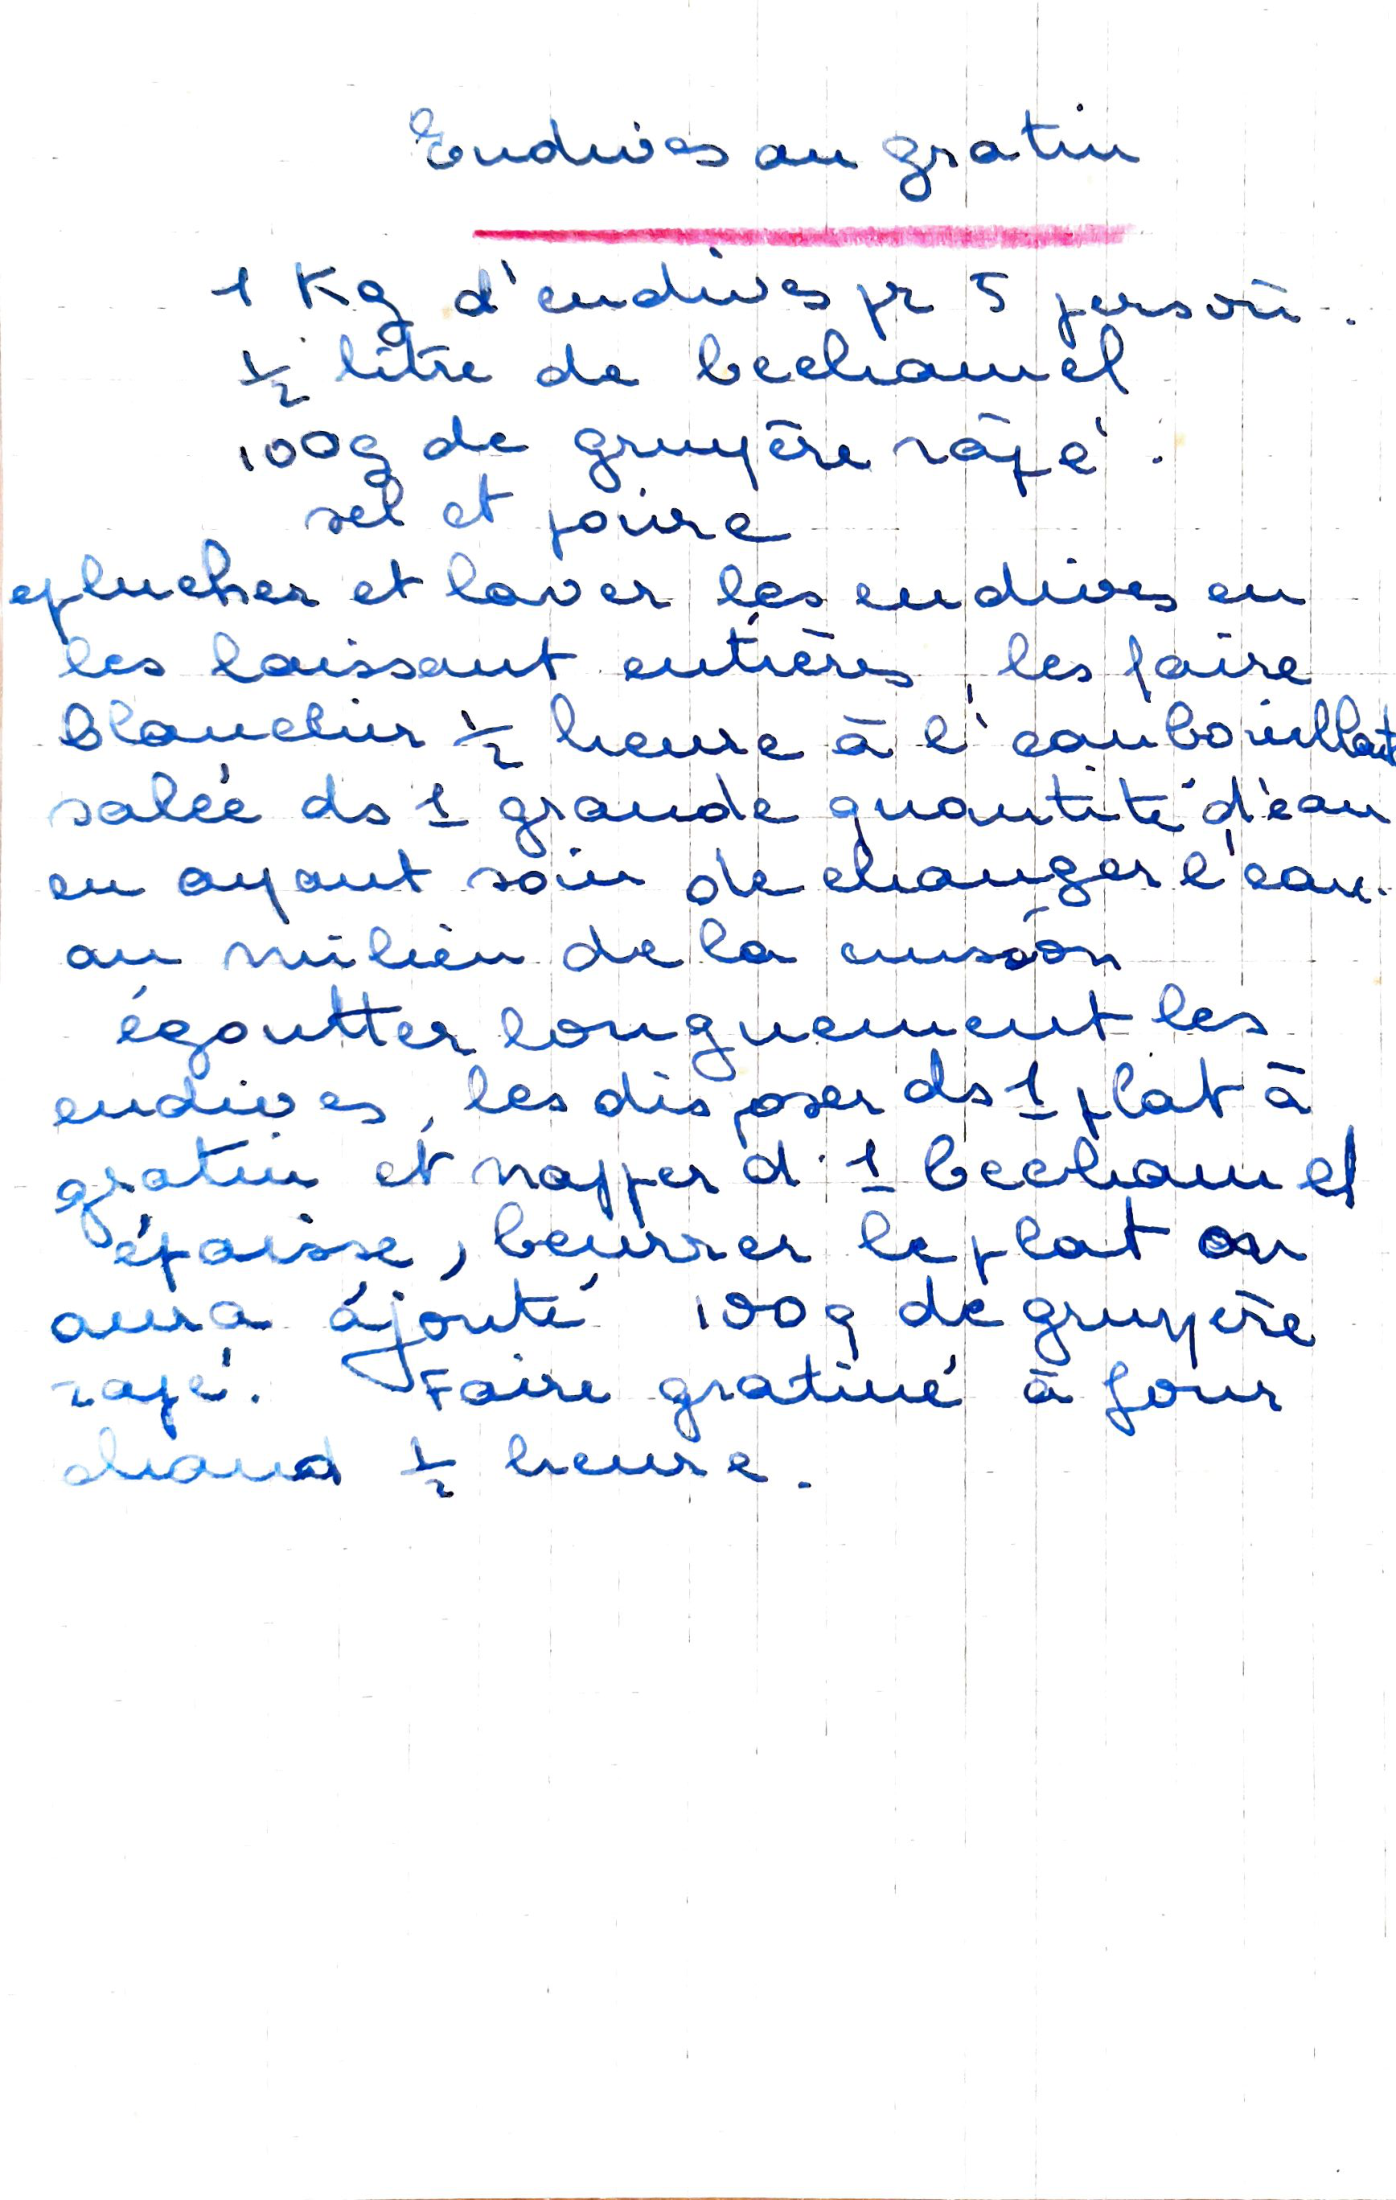 Endives au gratin
1 Kg d'endives pr 5 person.
1/2 litre de bechamel
100g de gruyère râpé.
sel et poivre
eplucher et laver les endives en
les laissant entières, les faire
blanchir 1/2 heure à l'eau bouillant
salée ds 1 grande quantité d'eau
en ayant soin de changer l'eau.
au milieu de la cuisson
égoutter longuement les
endives, les disposer ds 1 plat à
gratin et napper d'1 bechamel
épaisse, beurrer le plat on
aura ajouté 100g de gruyère
rapé. Faire gratiné à four
chaud 1/2 heure.